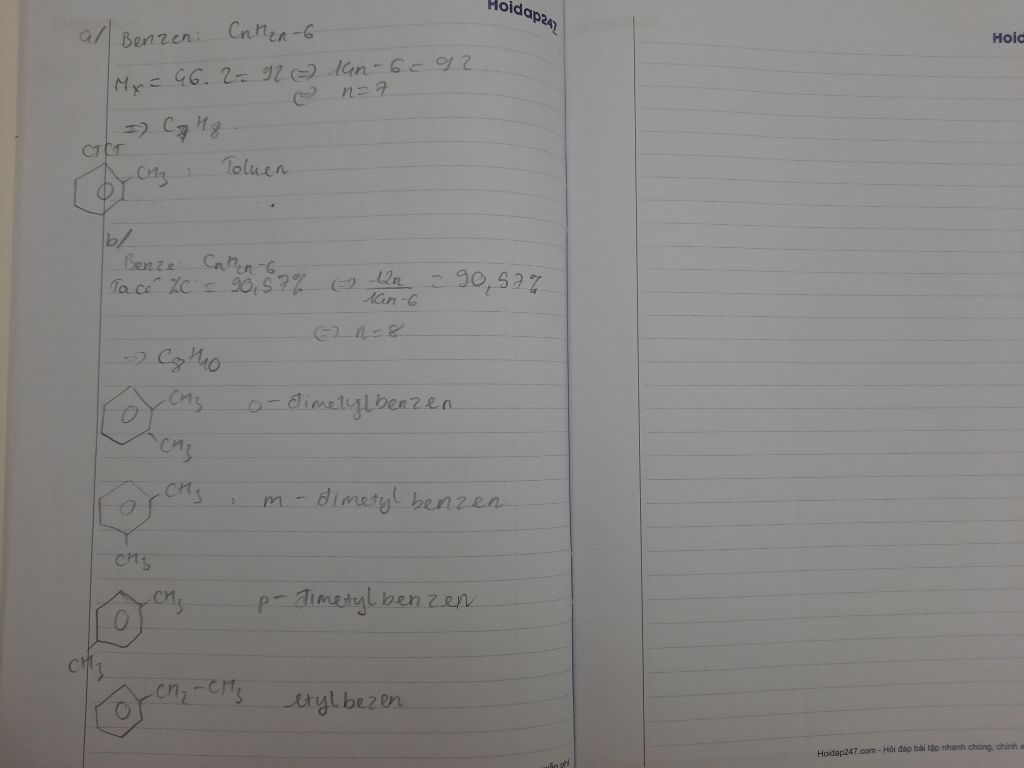 Hoidap247
Hoid
a/ Benzen: CnH2n-6
Mx = 46.2 = 92 <=> 14n-6 = 92
<=> n=7
=> C7H8
CTCT
CH3 : Toluen
b/
Benze: CnH2n-6
Ta có %C = 90,57% <=> 12n/14n-6 = 90,57%
<=> n=8
=> C8H10
CH3 o-dimetylbenzen
CH3
CH3 : m-dimetyl benzen
CH3
CH3 p-dimetylbenzen
CH3
CH2-CH3 etylbezen
Hoidap247.com - Hỏi đáp bài tập nhanh chóng, chính x
miễn phí